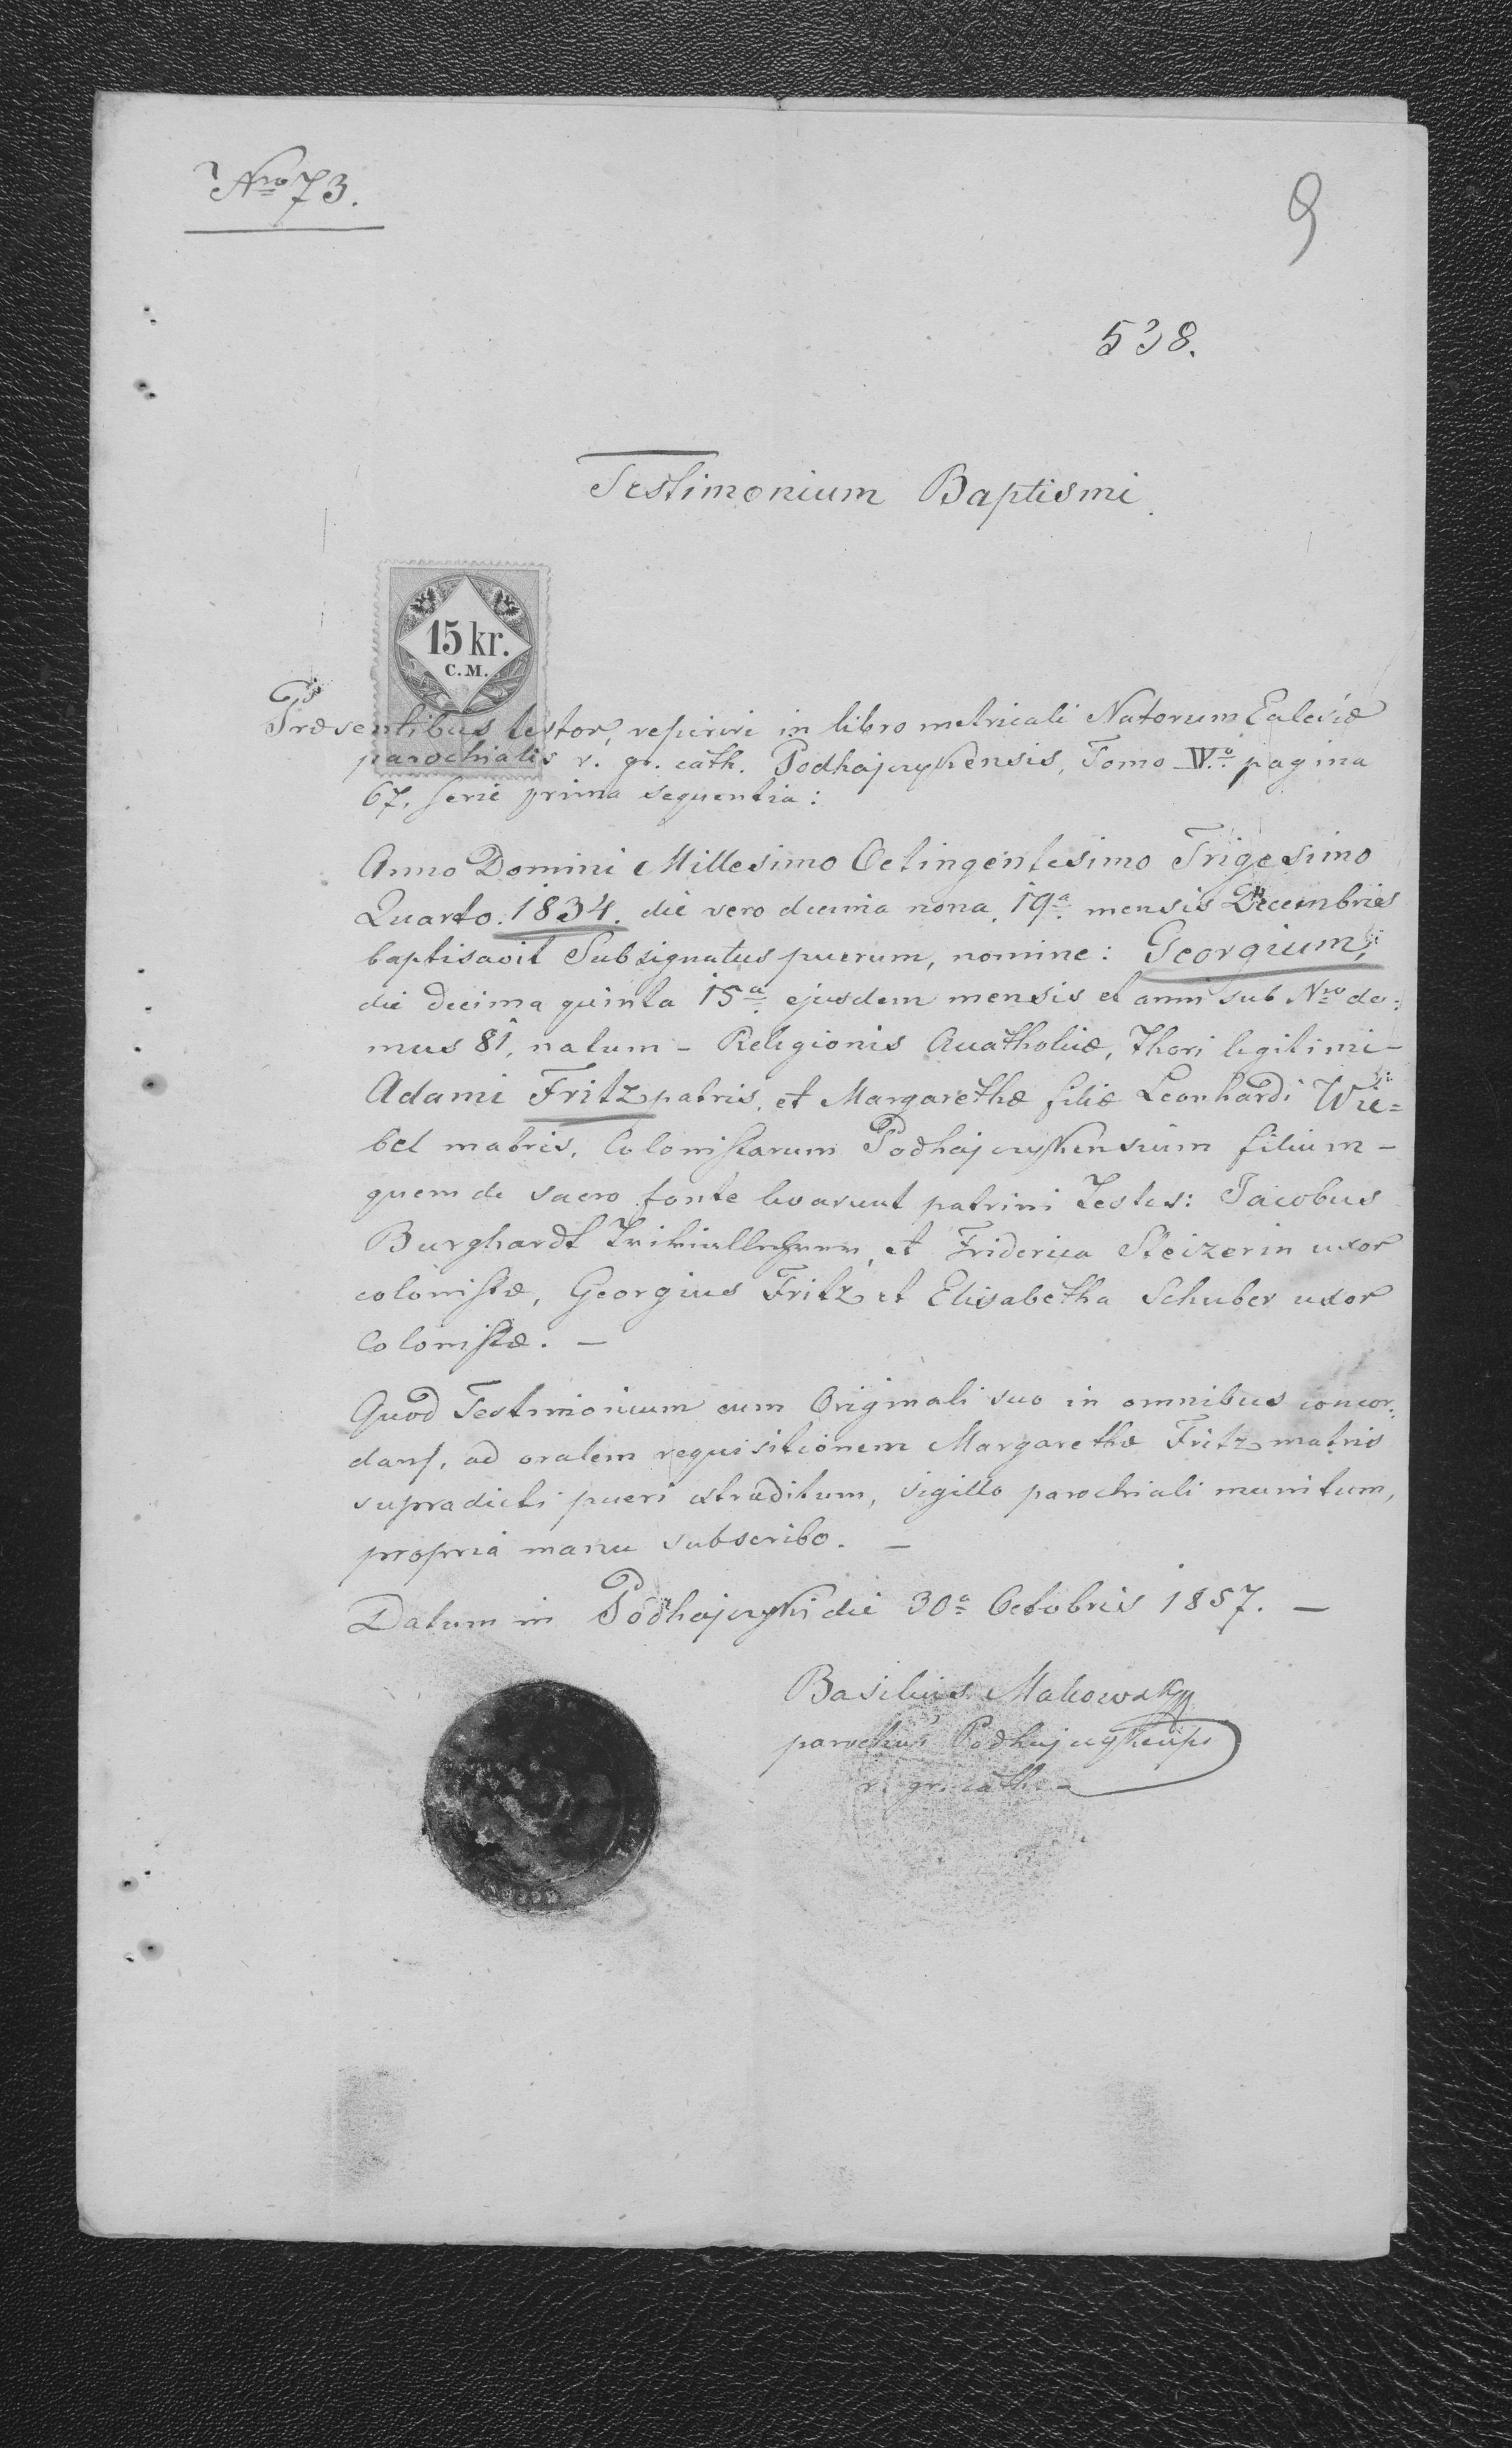 Nro 73.
9
538.
Testimonium Baptismi.
15 kr.
C.M.
Præsentibus testor, reperiri in libro metricali Natorum Eclesiæ
parochialis r. gr. cath. Podhajczykensis, Tomo IV.o pagina
67. serie prima sequentia:
Anno Domini Millesimo Octingentesimo Trigesimo
Quarto. 1834. die vero decima nona. 19a mensis Decembris
baptisavit Subsignatus puerum, nomine: Georgium,
die decima quinta 15a ejusdem mensis et anni sub Nro do:
mus 81, natum - Religionis Acatholicæ, Thori legitimi -
Adami Fritz patris, et Margarethæ filiæ Leonhardi Wie=
bel matris, Colonistarum Podhajczykensium filium -
quem de sacro fonte levarunt patrini Testes: Jacobus
Burghardt et Friderica Steizerin uxor
colonistæ, Georgius Fritz et Elisabetha Schuber uxor
Colonistæ. -
Quod Testimonium cum Originali suo in omnibus concor:
dans, ad oralem requisitionem Margarethæ Fritz matris
supradicti pueri extraditum, sigillo parochiali munitum,
propria manu subscribo. -
Datum in Podhajczyki die 30a Octobris 1857. -
Basilius Makowsky
parochus Podhajczykensis
r. gr. cath. -